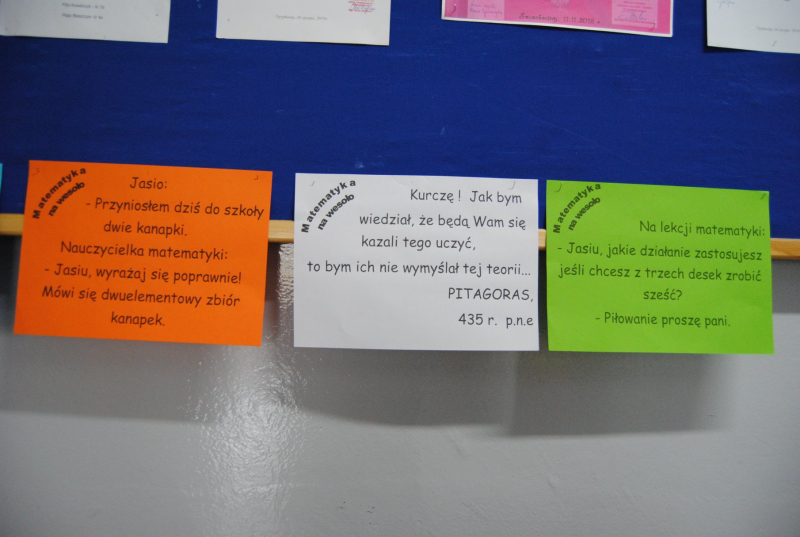 Matematyka
na wesoło
Jasio:
- Przyniosłem dziś do szkoły
dwie kanapki.
Nauczycielka matematyki:
- Jasiu, wyrażaj się poprawnie!
Mówi się dwuelementowy zbiór
kanapek.
Matematyka
na wesoło
Kurczę ! Jak bym
wiedział, że będą Wam się
kazali tego uczyć,
to bym ich nie wymyślał tej teorii...
PITAGORAS,
435 r. p.n.e
Matematyka
na wesoło
Na lekcji matematyki:
- Jasiu, jakie działanie zastosujesz
jeśli chcesz z trzech desek zrobić
sześć?
- Piłowanie proszę pani.